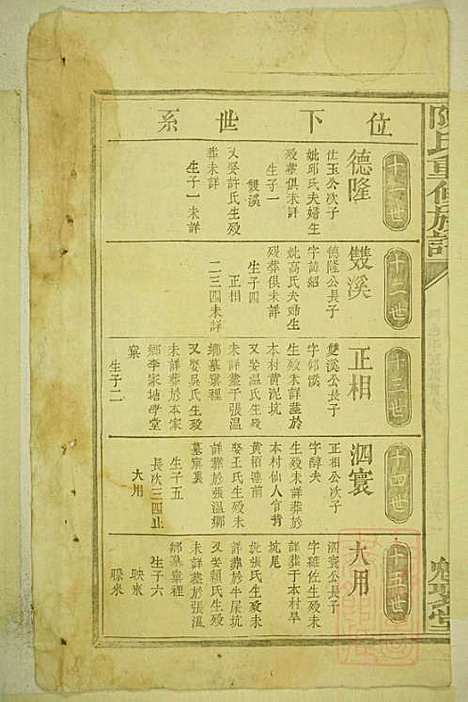 陳氏重修族譜
位下世系
十一世
德隆
仕玉公次子
妣邱氏夫婦生
歿葬俱未詳
生子一
雙溪
又娶許氏生歿
葬未詳
生子一未詳
十二世
雙溪
德隆公長子
字諱紹
妣高氏夫婦生
歿葬俱未詳
生子四
正相
二三四未詳
十三世
正相
雙溪公長子
字邻溪
生歿未詳塟於
本村黄泥坑
又娶温氏生歿
未詳塟于張温
鄉墓窠裡
又娶吳氏生歿
未詳葬於本家
鄉李家塘學堂
窠
生子二
十四世
泗寰
正相公次子
字醇夫
生歿未詳葬於
本村仙人官背
黄栢塘前
娶王氏生歿未
詳葬於張温鄉
墓窠裏
生子五
長次三四止
大用
十五世
大用
泗寰公長子
字羅佐生歿未
詳葬于本村旱
坑尾
妣張氏生歿未
詳葬於牛屎坑
又娶賴氏生歿
未詳塟於張温
鄉墓窠裡
生子六
映來
騄來